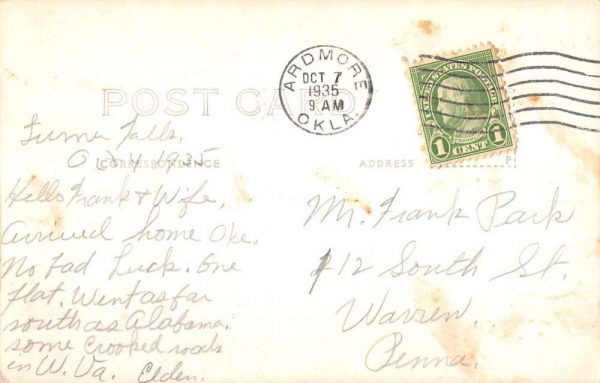 ARDMORE
OCT 7
1935
9 AM
OKLA.
UNITED STATES POSTAGE
1 CENT 1
POST CARD
CORRESPONDENCE
ADDRESS
Turner Falls,
Oct 4 1935
Hello Frank & Wife,
arrived home Oke.
No bad Luck. one
flat. Went as far
south as Alabama.
some crooked roads
in W. Va. Elden.
Mr. Frank Park
112 South St.
Warren
Penna.